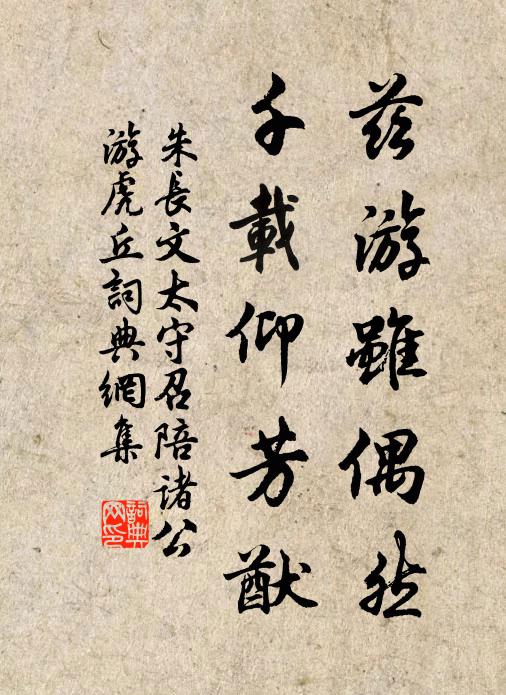 茲游雖偶然
千載仰芳猷
朱長文太守召陪諸公
游虎丘詞典網集
詞典
网印